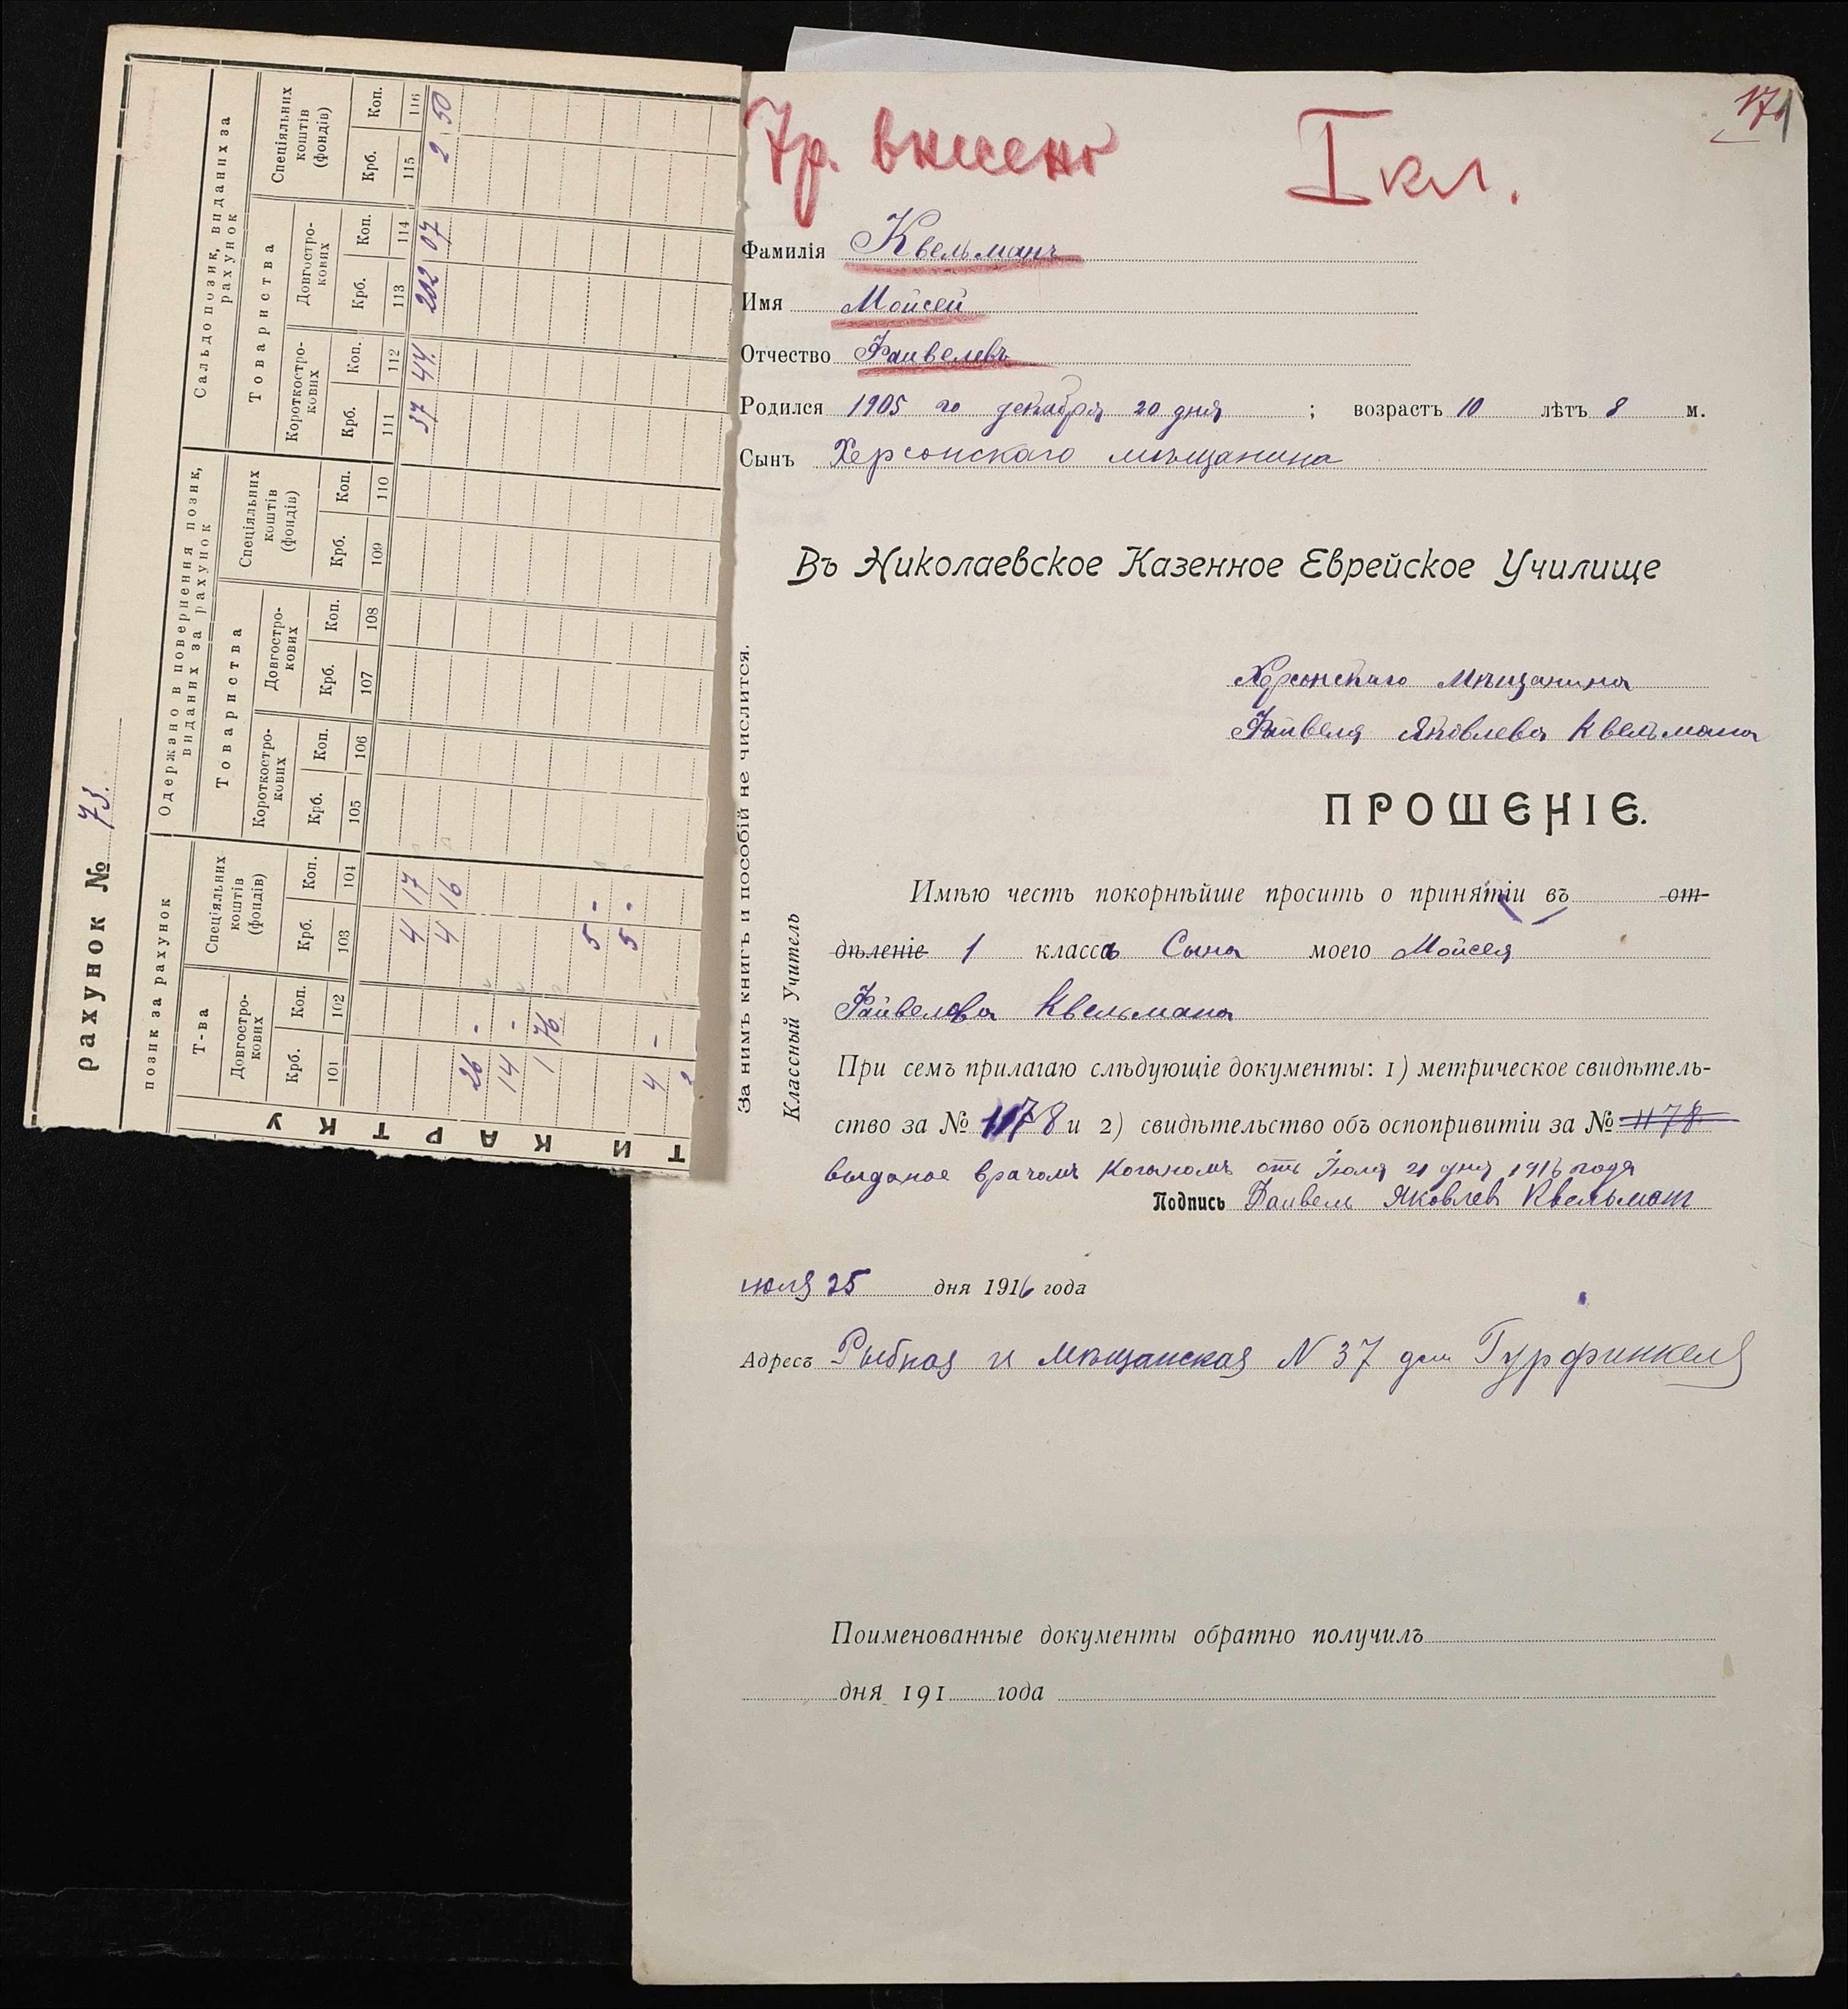 171
внесено I кл.
Фамилія Квельманъ
Имя Мойсей
Отчество Файвелевъ
Родился 1905 го декабря 20 дня ; возрастъ 10 лѣтъ 8 м.
Сынъ Херсонскаго мѣщанина
Въ Николаевское Казенное Еврейское Училище
Херсонскаго Мѣщанина
Файвеля Яковлева Квельмана
ПРОШЕНІЕ.
Имѣю честь покорнѣйше просить о принятіи въ от-
дѣленіе 1 класса Сына моего Мойсея
Файвелова Квельмана
При семъ прилагаю слѣдующіе документы: 1) метрическое свидѣтель-
ство за № 1178 и 2) свидѣтельство объ оспопривитіи за № 1178
выданое врачомъ Коганомъ отъ Іюля 21 дня 1916 года
Подпись Файвель Яковлев Квельман
июля 25 дня 1916 года
Адресъ Рыбная и мѣщанская N 37 дом Гурфинкеля
Поименованные документы обратно получилъ
дня 191 года
За нимъ книгъ и пособій не числится.
Классный Учитель
рахунок № 73.
позик за рахунок
Одержано в повернення позик, виданих за рахунок
Сальдо позик, виданих за рахунок
Т-ва
Спеціяльних коштів (фондів)
Товариства
Спеціяльних коштів (фондів)
Товариства
Спеціяльних коштів (фондів)
Довгостро-кових
Короткостро-кових
Довгостро-кових
Короткостро-кових
Довгостро-кових
Крб. Коп. Крб. Коп. Крб. Коп. Крб. Коп. Крб. Коп. Крб. Коп. Крб. Коп. Крб. Коп.
101 102 103 104 105 106 107 108 109 110 111 112 113 114 115 116
4 17 37 44 202 07 2 50
4 16
26 -
14 -
1 76
5 -
5 -
4 -
ТИ КАРТКУ